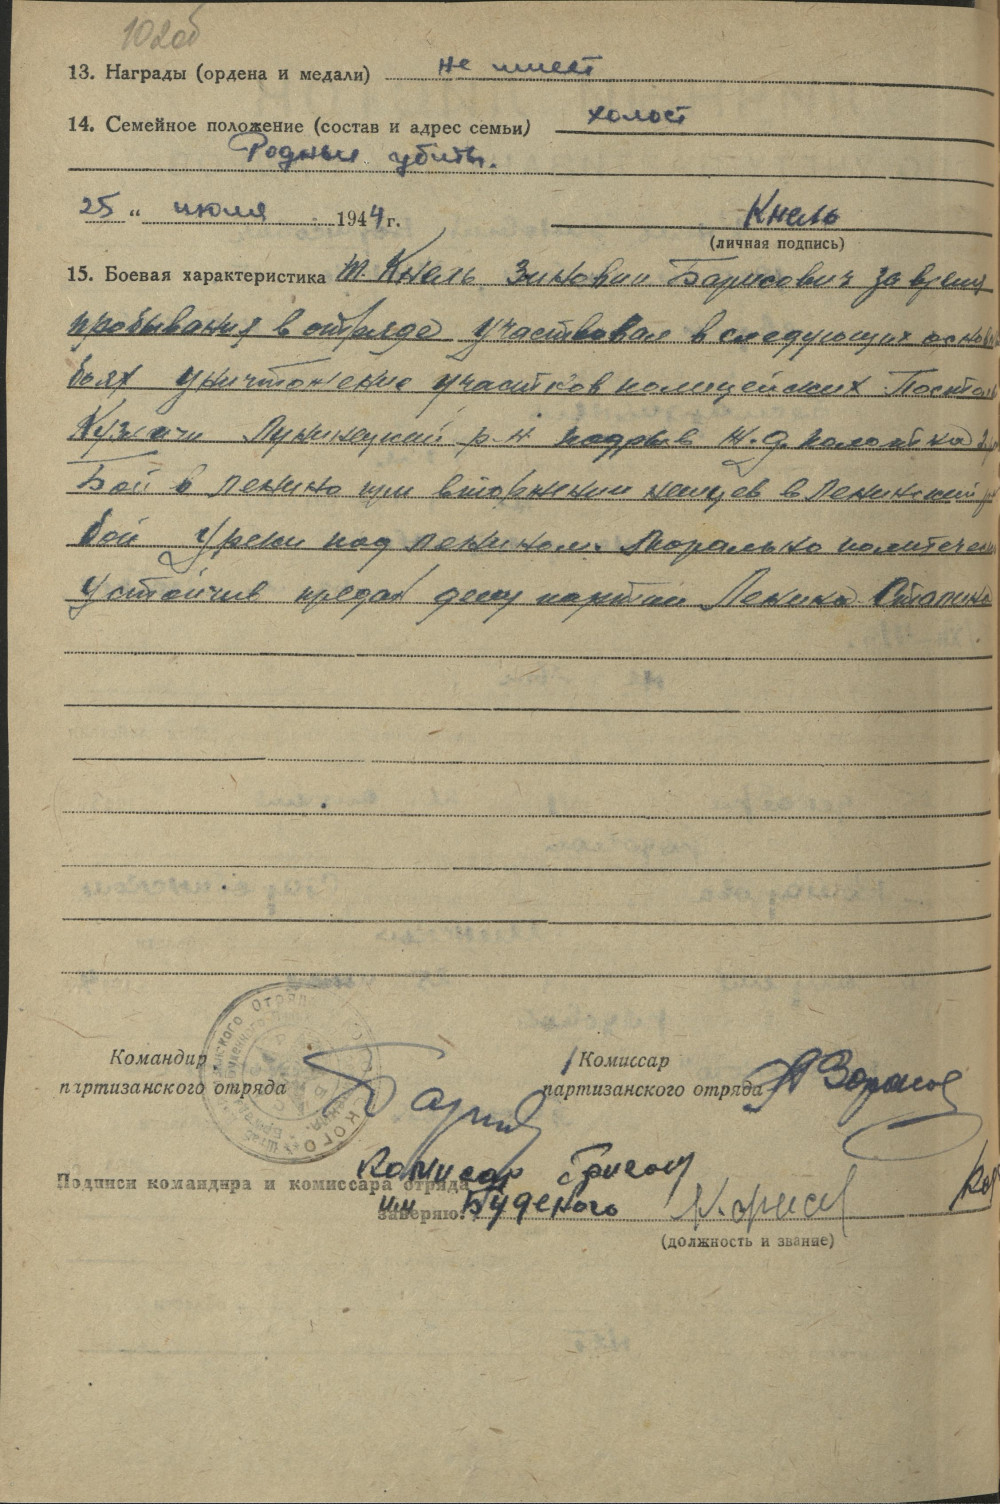 102об
13. Награды (ордена и медали) не имеет
14. Семейное положение (состав и адрес семьи) холост
Родные убиты.
25 " июля 1944 г.
Кнель
(личная подпись)
15. Боевая характеристика т. Кнель Зиновий Барисович за время
пробывания в отряде участвовал в следующих основн
боях уничтожение участков полицейских Поста
Лунинецкий р-н подрыв ж.д. полотна
Бой в Ленино при вторжении немцев в Ленинский
бой У реки под Ленином. Морально политечески
Устойчив предан делу партии Ленина Сталина
Командир
партизанского отряда
Комиссар
партизанского отряда
Комисар бригады
Подписи командира и комиссара отряда
им Буденого
заверяю:
(должность и звание)